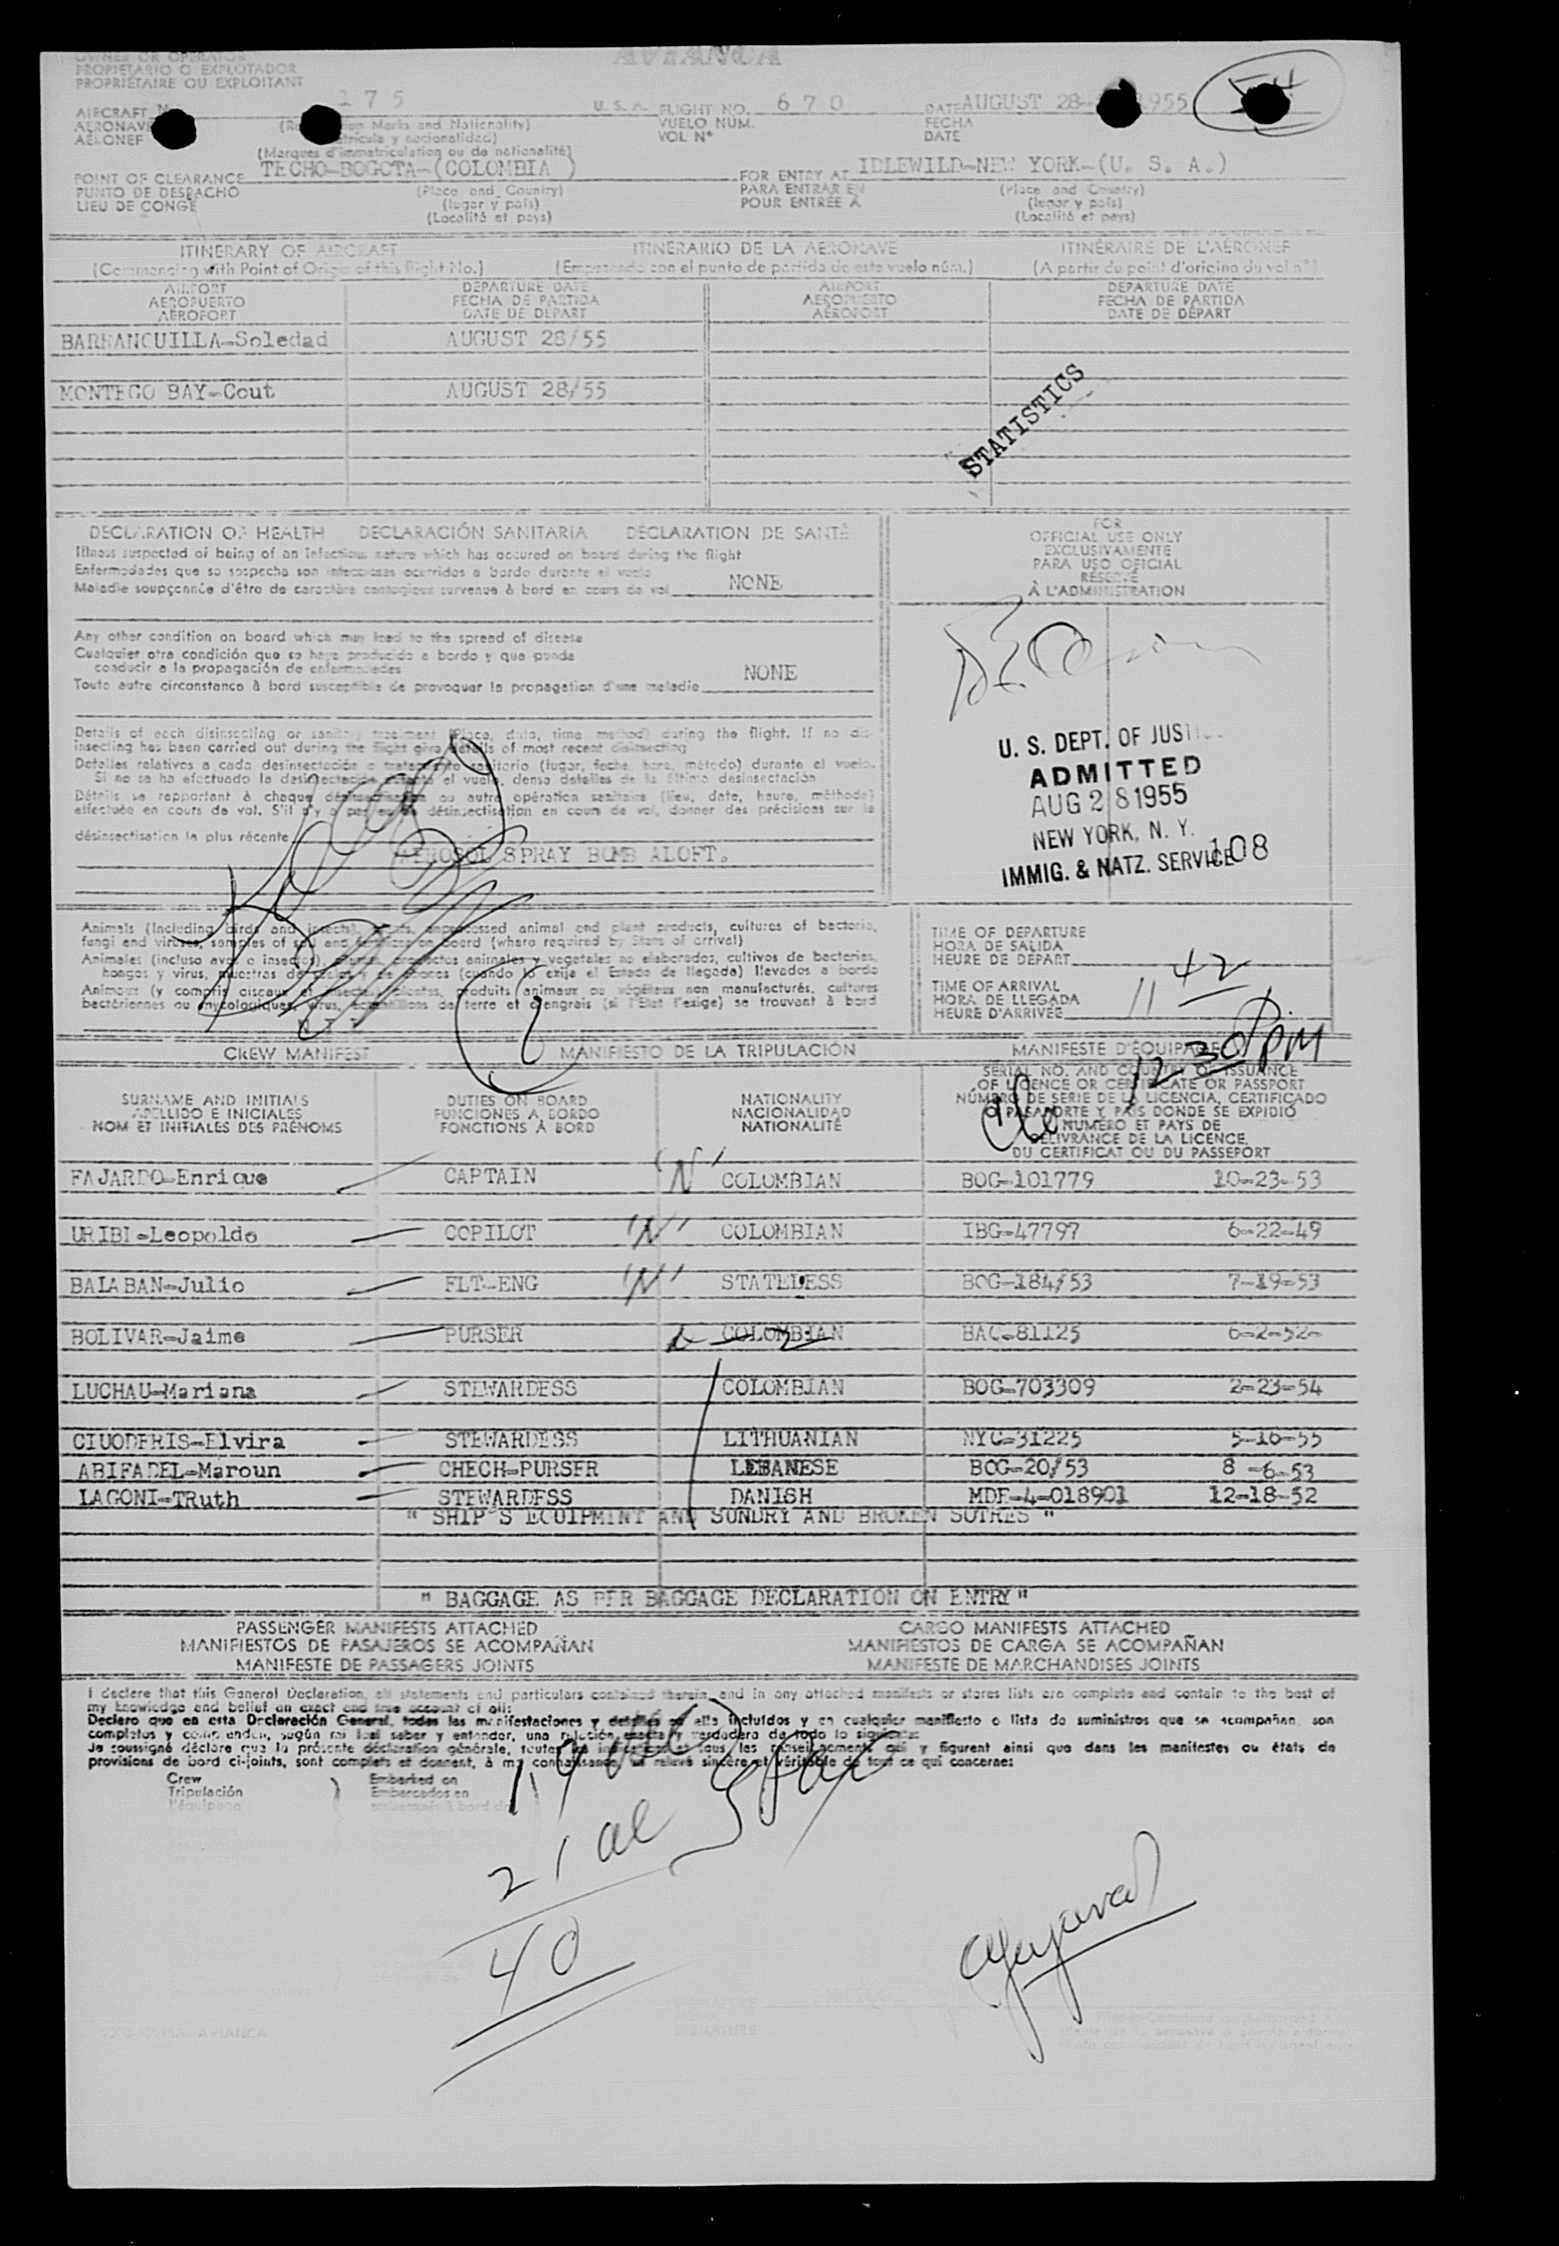 OWNER OR OPERATOR
PROPIETARIO O EXPLOTADOR
PROPRIÉTAIRE OU EXPLOITANT
AVIANCA
54
AIRCRAFT 175 U. S. A. FLIGHT NO. 670 DATE AUGUST 28- 1955
AERONAVE (Marks and Nationality) VUELO NUM. FECHA
AÉRONEF (Matrícula y nacionalidad) VOL N° DATE
(Marques d'immatriculation ou de nationalité)
POINT OF CLEARANCE TECHO-BOGOTA-(COLOMBIA ) FOR ENTRY AT IDLEWILD-NEW YORK-(U. S. A.)
PUNTO DE DESPACHO (Place and Country) PARA ENTRAR EN (Place and Country)
LIEU DE CONGÉ (lugar y país) POUR ENTRÉE À (lugar y país)
(Localité et pays) (Localité et pays)
ITINERARY OF AIRCRAFT ITINERARIO DE LA AERONAVE ITINÉRAIRE DE L'AÉRONEF
(Commencing with Point of Origin of this flight No.) (Empezando con el punto de partida de este vuelo núm.) (A partir du point d'origine du vol n°)
AIRPORT DEPARTURE DATE AIRPORT DEPARTURE DATE
AEROPUERTO FECHA DE PARTIDA AEROPUERTO FECHA DE PARTIDA
AÉROPORT DATE DE DÉPART AÉROPORT DATE DE DÉPART
BARRANQUILLA-Soledad AUGUST 28/55
MONTEGO BAY-Cout AUGUST 28/55
STATISTICS
DECLARATION OF HEALTH DECLARACIÓN SANITARIA DÉCLARATION DE SANTÉ
Illness suspected of being of an infectious nature which has occured on board during the flight
Enfermedades que se sospecha son infecciosas ocurridas a bordo durante el vuelo
Maladie soupçonnée d'être de caractère contagieux survenue à bord en cours de vol NONE
Any other condition on board which may lead to the spread of disease
Cualquier otra condición que se haya producido a bordo y que pueda
conducir a la propagación de enfermedades
Toute autre circonstance à bord susceptible de provoquer la propagation d'une maladie NONE
Details of each disinsecting or sanitary treatment (Place, date, time method) during the flight. If no dis-
insecting has been carried out during the flight give details of most recent disinsecting
Detalles relativos a cada desinsectación o tratamiento sanitario (lugar, fecha, hora, método) durante el vuelo.
Si no se ha efectuado la desinsectación durante el vuelo, dense detalles de la última desinsectación
Détails se rapportant à chaque désinsectisation ou autre opération sanitaire (lieu, date, heure, méthode)
effectuée en cours de vol. S'il n'y a pas eu de désinsectisation en cours de vol, donner des précisions sur la
désinsectisation la plus récente
AEROSOL SPRAY BOMB ALOFT.
FOR
OFFICIAL USE ONLY
EXCLUSIVAMENTE
PARA USO OFICIAL
RÉSERVÉ
À L'ADMINISTRATION
U. S. DEPT. OF JUSTICE
ADMITTED
AUG 28 1955
NEW YORK, N. Y.
IMMIG. & NATZ. SERVICE 108
Animals (Including birds and insects), plants, unprocessed animal and plant products, cultures of bacteria,
fungi and viruses, samples of soil and fertilizer on board (where required by State of arrival)
Animales (incluso aves o insectos), plantas, productos animales y vegetales no elaborados, cultivos de bacterias,
hongos y virus, muestras de suelos y de abonos (cuando lo exija el Estado de llegada) llevados a bordo
Animaux (y compris oiseaux et insectes), plantes, produits animaux ou végétaux non manufacturés, cultures
bactériennes ou mycologiques, virus, échantillons de terre et d'engrais (si l'État l'exige) se trouvant à bord
TIME OF DEPARTURE
HORA DE SALIDA
HEURE DE DÉPART
TIME OF ARRIVAL
HORA DE LLEGADA
HEURE D'ARRIVÉE 11 42
12 30 pm
CREW MANIFEST MANIFIESTO DE LA TRIPULACIÓN MANIFESTE D'ÉQUIPAGE
SURNAME AND INITIALS DUTIES ON BOARD NATIONALITY SERIAL NO. AND COUNTRY OF ISSUANCE
APELLIDO E INICIALES FUNCIONES A BORDO NACIONALIDAD OF LICENCE OR CERTIFICATE OR PASSPORT
NOM ET INITIALES DES PRÉNOMS FONCTIONS À BORD NATIONALITÉ NÚMERO DE SERIE DE LA LICENCIA, CERTIFICADO
O PASAPORTE Y PAIS DONDE SE EXPIDIÓ
NUMÉRO ET PAYS DE
DÉLIVRANCE DE LA LICENCE,
DU CERTIFICAT OU DU PASSEPORT
FAJARDO-Enrique CAPTAIN "N" COLOMBIAN BOG-101779 10-23-53
URIBI-Leopoldo COPILOT "N" COLOMBIAN IBG-47797 6-22-49
BALABAN-Julio FLT-ENG "N" STATELESS BOG-184/53 7-19-53
BOLIVAR-Jaime PURSER COLOMBIAN BAC-81125 6-2-52-
LUCHAU-Mariana STEWARDESS COLOMBIAN BOG-703309 2-23-54
CIUODERIS-Elvira STEWARDESS LITHUANIAN NYC-31225 5-16-55
ABIFADEL-Maroun CHECH-PURSER LEBANESE BOG-20/53 8 -6-53
LAGONI-TRuth STEWARDESS DANISH MDE-4-018901 12-18-52
" SHIP'S EQUIPMENT AND SUNDRY AND BROKEN SOTRES "
" BAGGAGE AS PER BAGGAGE DECLARATION ON ENTRY"
PASSENGER MANIFESTS ATTACHED CARGO MANIFESTS ATTACHED
MANIFIESTOS DE PASAJEROS SE ACOMPAÑAN MANIFIESTOS DE CARGA SE ACOMPAÑAN
MANIFESTE DE PASSAGERS JOINTS MANIFESTE DE MARCHANDISES JOINTS
I declare that this General Declaration, all statements and particulars contained therein, and in any attached manifests or stores lists are complete and contain to the best of
my knowledge and belief an exact and true account of all:
Declaro que en esta Declaración General, todas las manifestaciones y detalles en ella incluídos y en cualquier manifiesto o lista de suministros que se acompañan, son
completos y comprenden, según mi leal saber y entender, una relación exacta y verdadera de todo lo siguiente:
Je soussigné déclare que la présente déclaration générale, toutes les indications et tous les renseignements qui y figurent ainsi que dans les manifestes ou états de
provisions de bord ci-joints, sont complets et donnent, à ma connaissance, un relevé sincère et véritable de tout ce qui concerne:
Crew Embarked on
Tripulación Embarcados en
l'équipage
19 usc
21 al
40